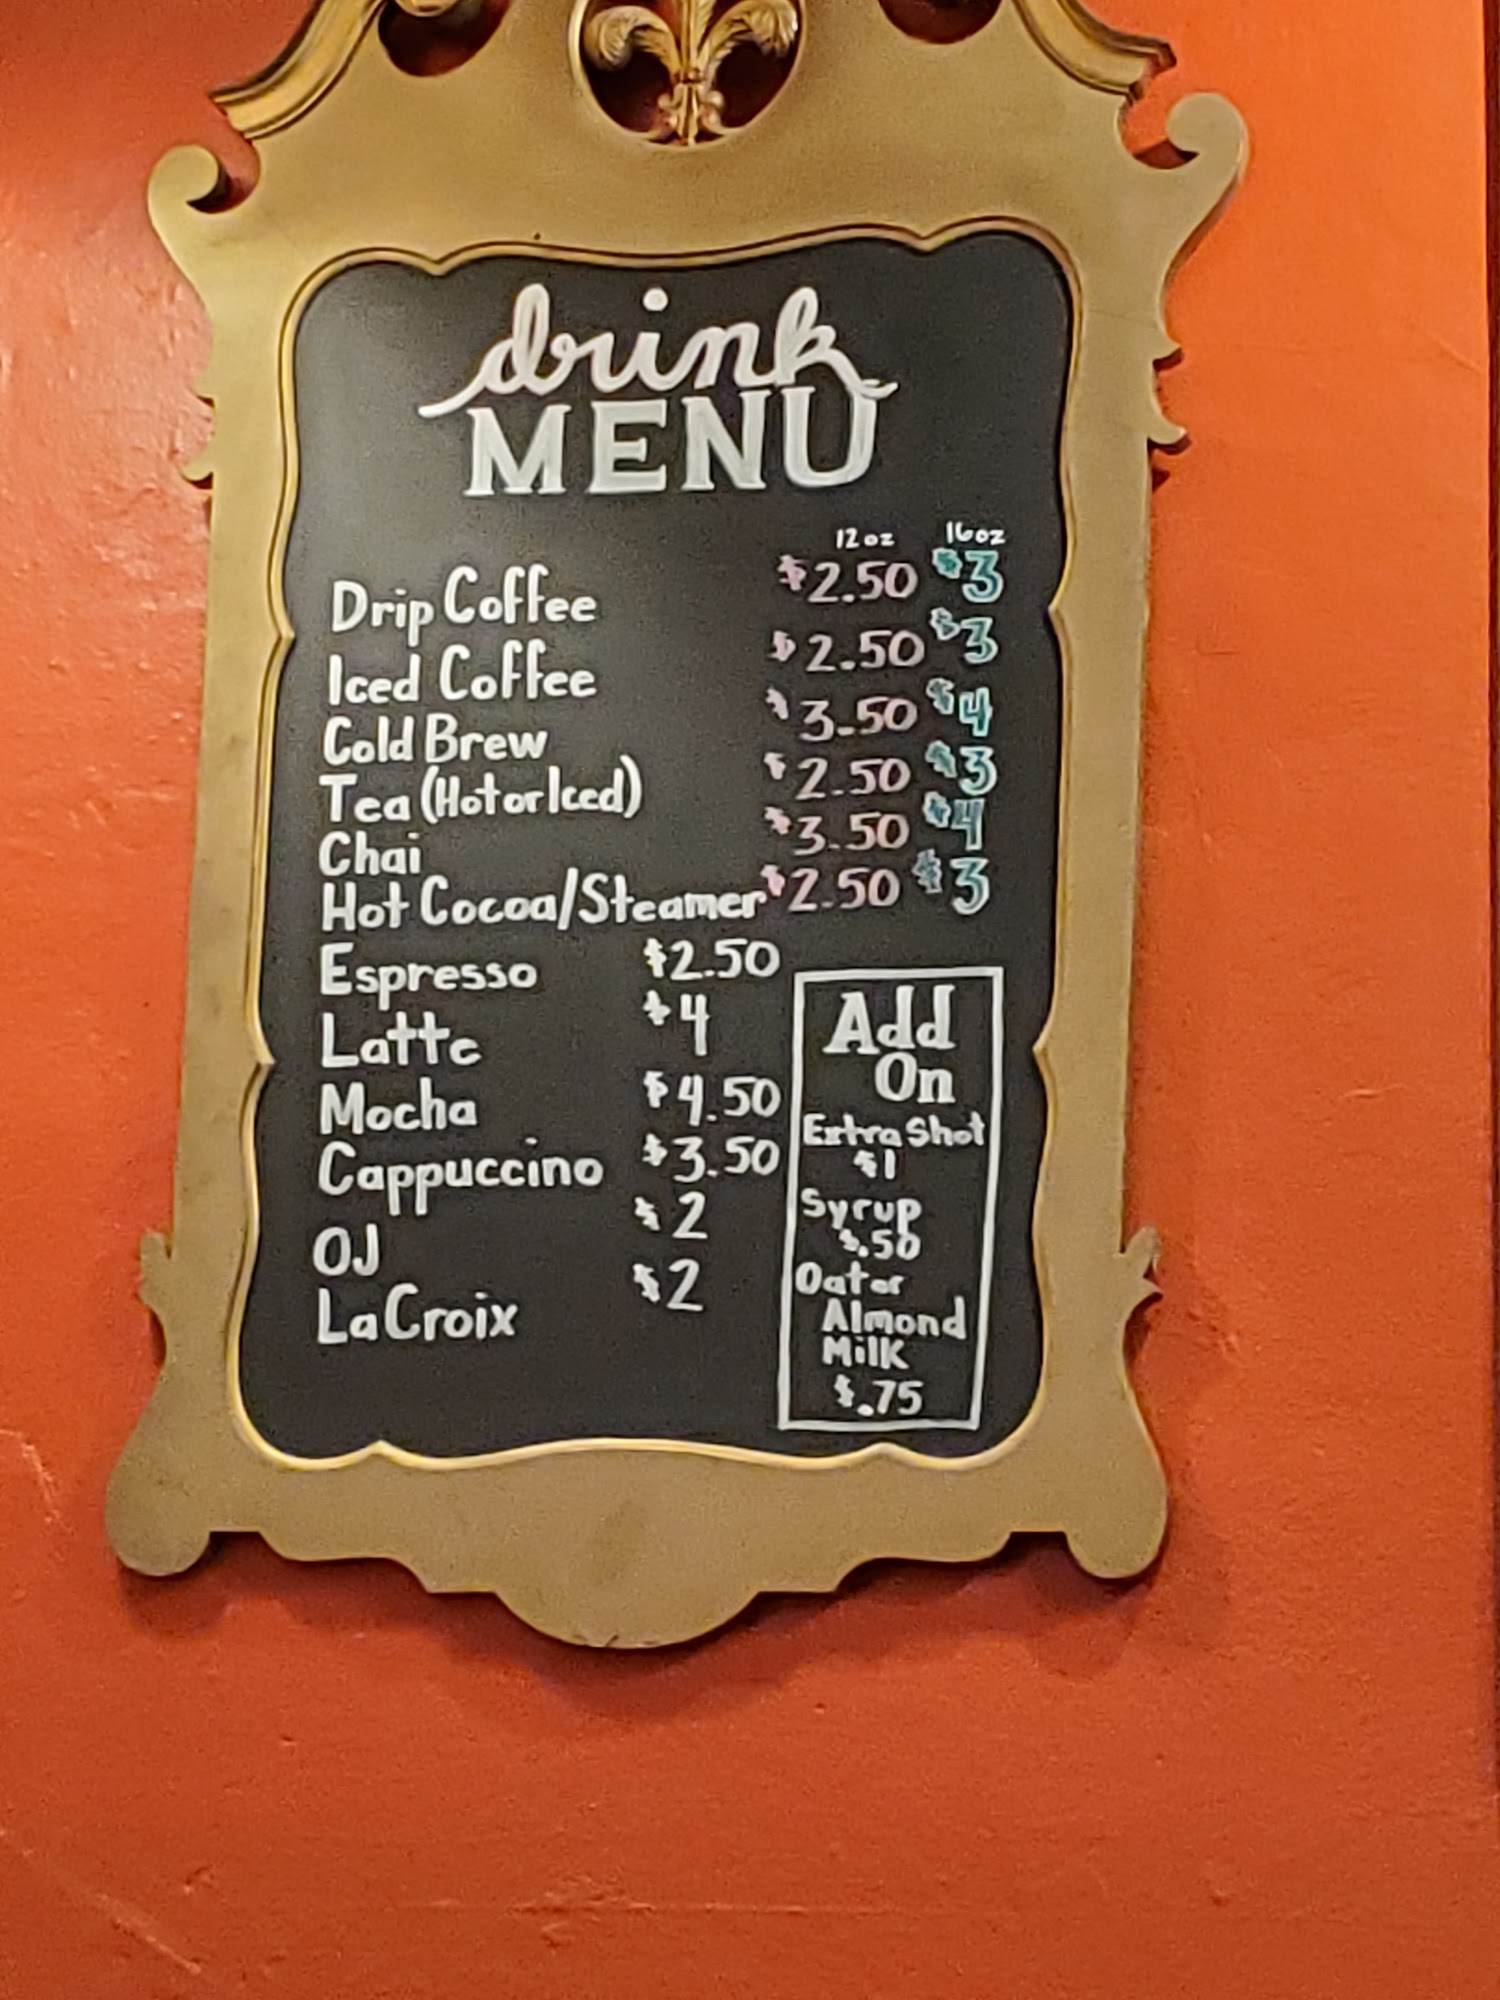 drink
MENU
12oz 16oz
Drip Coffee $2.50 $3
Iced Coffee $2.50 $3
Cold Brew $3.50 $4
Tea (Hot or Iced) $2.50 $3
Chai $3.50 $4
Hot Cocoa/Steamer $2.50 $3
Espresso $2.50
Latte $4
Mocha $4.50
Cappuccino $3.50
OJ $2
LaCroix $2
Add
On
Extra Shot
$1
Syrup
$.50
Oat or
Almond
Milk
$.75